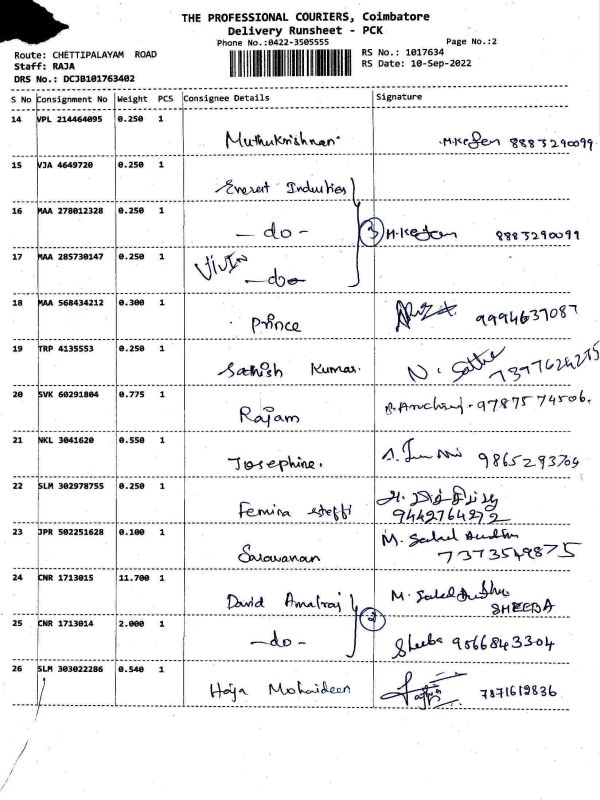 THE PROFESSIONAL COURIERS, Coimbatore
Delivery Runsheet - PCK
Phone No.:0422-3505555 Page No.:2
Route: CHETTIPALAYAM ROAD RS No.: 1017634
Staff: RAJA RS Date: 10-Sep-2022
DRS No.: DCJB101763402
S No Consignment No Weight PCS Consignee Details Signature
14 VPL 214464095 0.250 1 Muthukrishnan 8883290099
15 VJA 4649720 0.250 1 Everest Industries
16 MAA 278012328 0.250 1 -do- 3 8883290099
17 MAA 285730147 0.250 1 VIVIN -do-
18 MAA 568434212 0.300 1 Prince 9994637087
19 TRP 4135553 0.250 1 Sathish Kumar. 7397624275
20 SVK 60291804 0.775 1 Rajam 9787574506.
21 NKL 3041620 0.550 1 Josephine. 9865293704
22 SLM 302978755 0.250 1 Femina steffi 9442764272
23 JPR 502251628 0.100 1 Saravanan 7373549875
24 CNR 1713015 11.700 1 David Amalraj SHEEBA
25 CNR 1713014 2.000 1 -do- 2 Sheeba 9566843304
26 SLM 303022286 0.540 1 Haja Mohaideen 7871619836